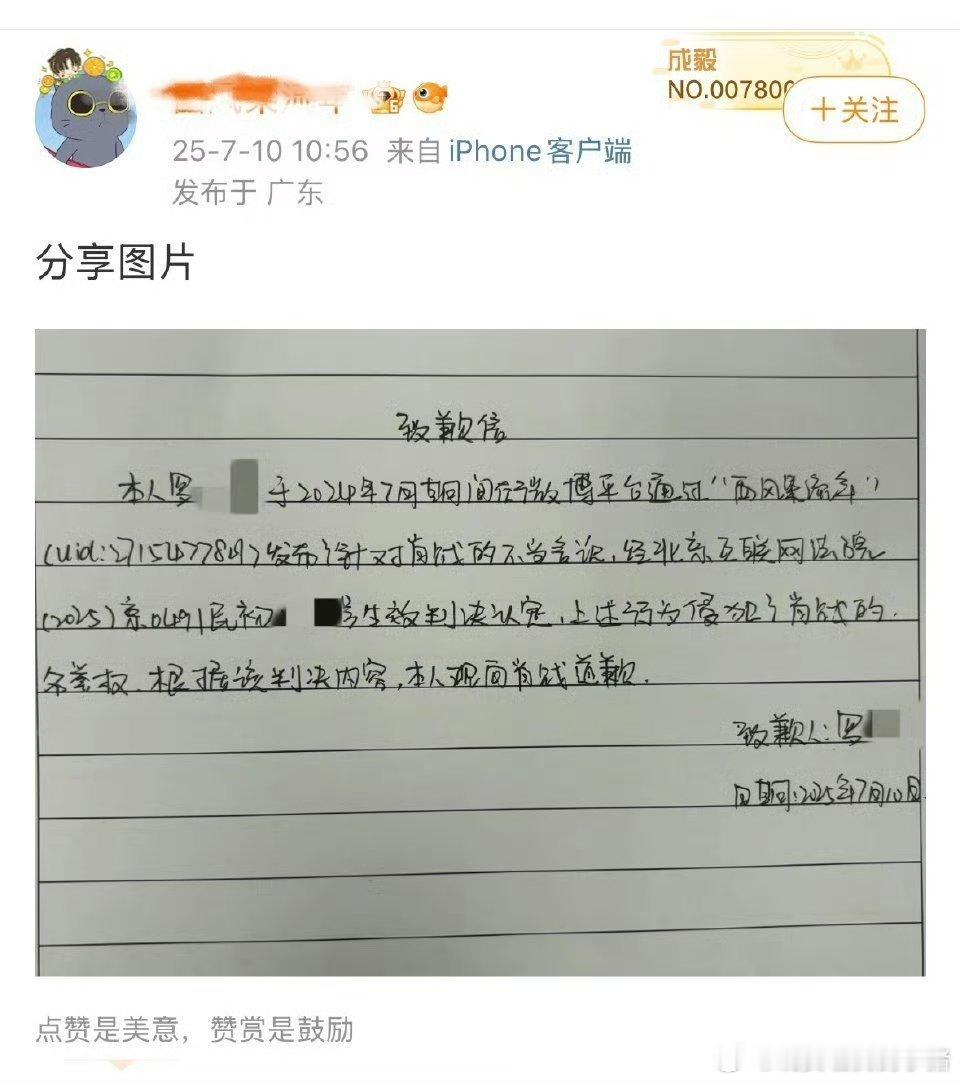 成毅
NO.007800
+关注
25-7-10 10:56 来自 iPhone客户端
发布于 广东
分享图片
致歉信
本人罗 于2024年7月期间在微博平台通过“西风渠流年”
(uid:2715477849)发布了针对肖战的不当言论,经北京互联网法院
(2025)京0491民初 号生效判决认定,上述行为侵犯了肖战的
名誉权.根据该判决内容,本人现向肖战道歉.
致歉人:罗
日期:2025年7月10日.
点赞是美意，赞赏是鼓励